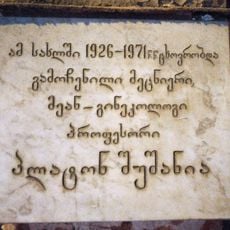 ამ სახლში 1926–1971 წწ ცხოვრობდა
გამოჩენილი მეცნიერი,
მეან–გინეკოლოგი
პროფესორი
პლატონ შუშანია